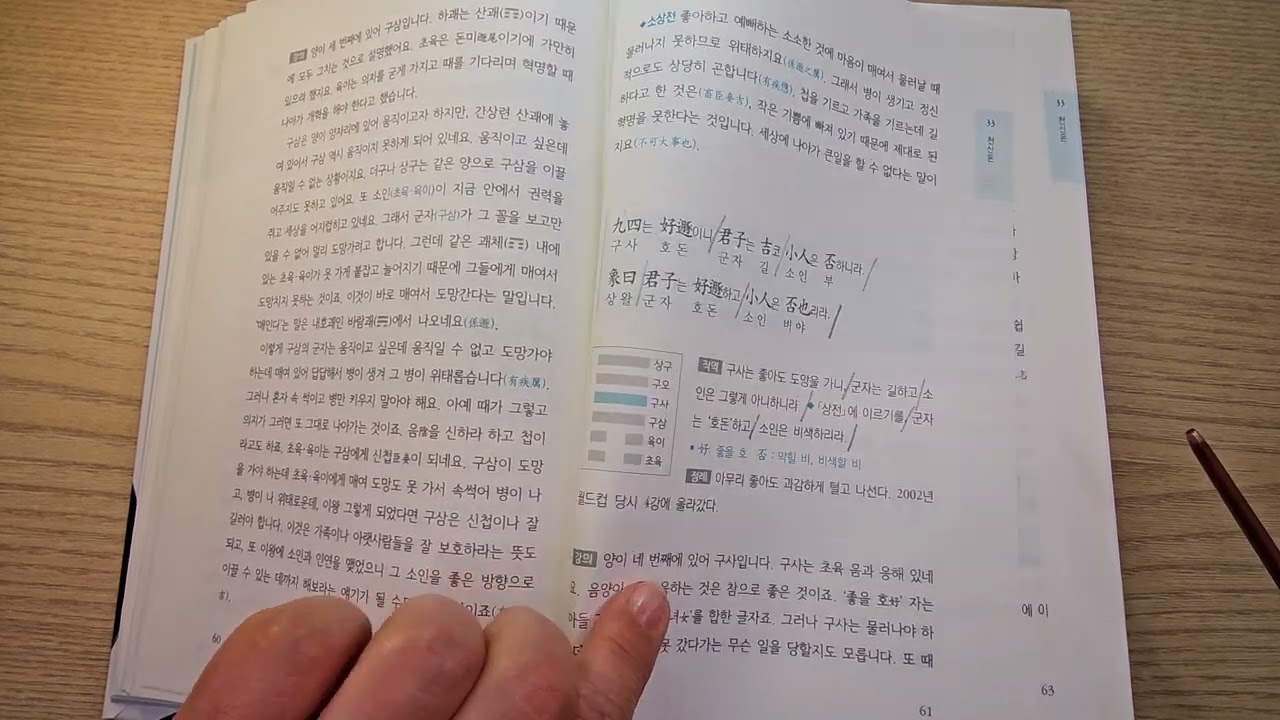 강의 양이 세 번째에 있어 구삼입니다. 하괘는 산괘(☶)이기 때문
에 모두 그치는 것으로 설명했어요. 초육은 돈미遯尾이기에 가만히
있으라 했지요. 육이는 의지를 굳게 가지고 때를 기다리며 혁명할 때
나아가 개혁을 해야 한다고 했습니다.
구삼은 양이 양자리에 있어 움직이고자 하지만, 간상련 산괘에 놓
여 있어서 구삼 역시 움직이지 못하게 되어 있네요. 움직이고 싶은데
움직일 수 없는 상황이지요. 더구나 상구는 같은 양으로 구삼을 이끌
어주지도 못하고 있어요. 또 소인(초육·육이)이 지금 안에서 권력을
쥐고 세상을 어지럽히고 있네요. 그래서 군자(구삼)가 그 꼴을 보고만
있을 수 없어 멀리 도망가려고 합니다. 그런데 같은 괘체(☶) 내에
있는 초육·육이가 못 가게 붙잡고 늘어지기 때문에 그들에게 매여서
도망치지 못하는 것이죠. 이것이 바로 매여서 도망간다는 말입니다.
'매인다'는 말은 내호괘인 바람괘(☴)에서 나오네요(係遯).
이렇게 구삼의 군자는 움직이고 싶은데 움직일 수 없고 도망가야
하는데 매여 있어 답답해서 병이 생겨 그 병이 위태롭습니다(有疾厲).
그러나 혼자 속 썩이고 병만 키우지 말아야 해요. 아예 때가 그렇고
의지가 그러면 또 그대로 나아가는 것이죠. 음陰을 신하라 하고 첩이
라고도 하죠. 초육·육이는 구삼에게 신첩臣妾이 되네요. 구삼이 도망
을 가야 하는데 초육·육이에게 매여 도망도 못 가서 속썩어 병이 나
고, 병이 나 위태로운데, 이왕 그렇게 되었다면 구삼은 신첩이나 잘
길러야 합니다. 이것은 가족이나 아랫사람들을 잘 보호하라는 뜻도
되고, 또 이왕에 소인과 인연을 맺었으니 그 소인을 좋은 방향으로
이끌 수 있는 데까지 해보라는 얘기가 될 수
吉).
60
◆소상전 좋아하고 예뻐하는 소소한 것에 마음이 매여서 물러날 때
물러나지 못하므로 위태하지요(係遯之厲). 그래서 병이 생기고 정신
적으로도 상당히 곤합니다(有疾憊). 첩을 기르고 가족을 기르는데 길
하다고 한 것은(畜臣妾吉), 작은 기쁨에 빠져 있기 때문에 제대로 된
혁명을 못한다는 것입니다. 세상에 나아가 큰일을 할 수 없다는 말이
지요(不可大事也).
九四는 好遯이니 君子는 吉코 小人은 否하니라.
구사 호돈 군자 길 소인 부
象曰 君子는 好遯하고 小人은 否也리라.
상왈 군자 호돈 소인 비야
상구
구오
구사
구삼
육이
초육
직역 구사는 좋아도 도망을 가니, 군자는 길하고 소
인은 그렇게 아니하니라. ◆「상전」에 이르기를, 군자
는 '호돈'하고 소인은 비색하리라.
▪好 좋을 호 否 : 막힐 비, 비색할 비
점례 아무리 좋아도 과감하게 털고 나선다. 2002년
월드컵 당시 4강에 올라갔다.
강의 양이 네 번째에 있어 구사입니다. 구사는 초육 음과 응해 있네
요. 하는 것은 참으로 좋은 것이죠. '좋을 호好' 자는
아들 녀女'를 합한 글자죠. 그러나 구사는 물러나야 하
못 갔다가는 무슨 일을 당할지도 모릅니다. 또 때
61
33
천산돈
33
천산돈
쉽
길
에 이
63